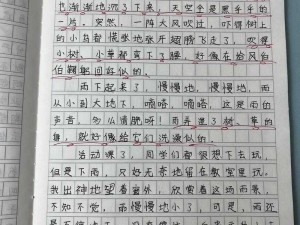 也渐渐地沉了下来，天空乎是黑乎乎的
一片，突然，一阵大风吹过，吓得树上
的小鸟都慌张地张开翅膀飞走了，吹得
小树、小草都弯下了腰，好像在给风伯
伯鞠躬问好似的。
雨下起来了，慢慢地，慢慢地，雨
从小到大地下，嘀嗒，嘀嗒，这是雨的
声音，多么清脆呀！而弄湿了树、草的
身，就好像给它们洗澡似的。
活动课了，同学们都很想下去玩，
但是下雨，只好无奈地留在教室里玩。
我出神地望着窗外，欣赏着这场雨，
不知不觉，雨慢慢地小了，可是，雨还